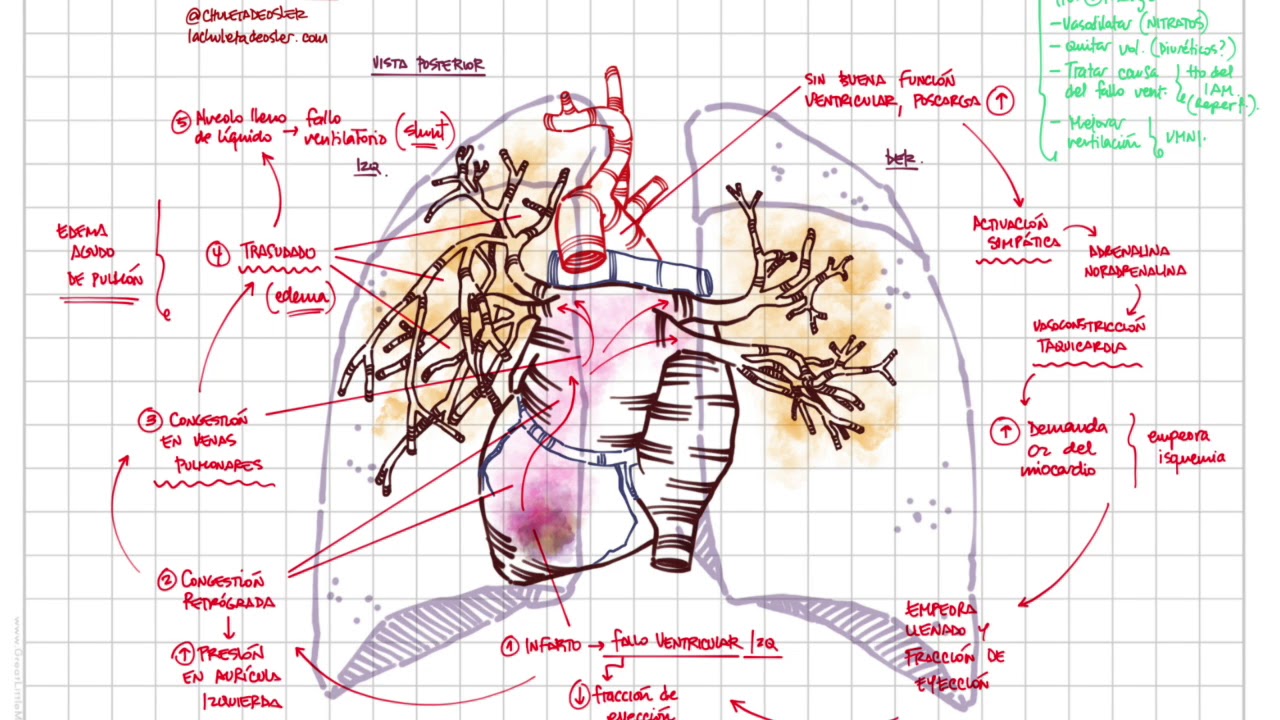 @CHULETADEOSLER
lachuletadeosler.com
VISTA POSTERIOR
⑤ Alveolo lleno
de líquido → fallo
ventilatorio (shunt)
IZQ.
SIN BUENA FUNCIÓN
VENTRICULAR, POSCARGA ↑
DER.
- Vasodilatar (NITRATOS)
- Quitar vol. (Diuréticos?)
- Tratar causa
del fallo vent.
tto del
IAM.
(reperf.).
- Mejorar
ventilación
VMNI.
EDEMA
AGUDO
DE PULMÓN
④ TRASUDADO
(edema)
ACTIVACIÓN
SIMPÁTICA
ADRENALINA
NORADRENALINA
VASOCONSTRICCIÓN
TAQUICARDIA
③ CONGESTIÓN
EN VENAS
PULMONARES
↑ Demanda
O2 del
miocardio
empeora
isquemia
② CONGESTIÓN
RETRÓGRADA
↓
↑ PRESIÓN
EN AURÍCULA
IZQUIERDA
① INFARTO → fallo VENTRICULAR IZQ
↓ fracción de
eyección
EMPEORA
LLENADO Y
FRACCIÓN DE
EYECCIÓN